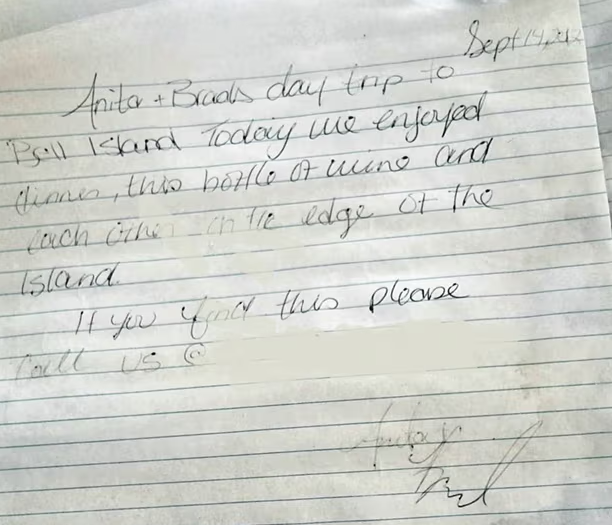 Sept 14, 2012
Anita + Brads day trip to
Bell Island Today we enjoyed
dinner, this bottle of wine and
each other on the edge of the
Island.
If you find this please
call us @
Anita &
Brad